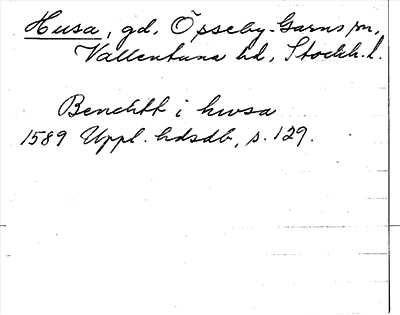 Husa, gd, Össeby-Garns sn,
Vallentuna hd, Stockh. l.
Benchtt i hwsa
1589 Uppl. hdsdb, s. 129.